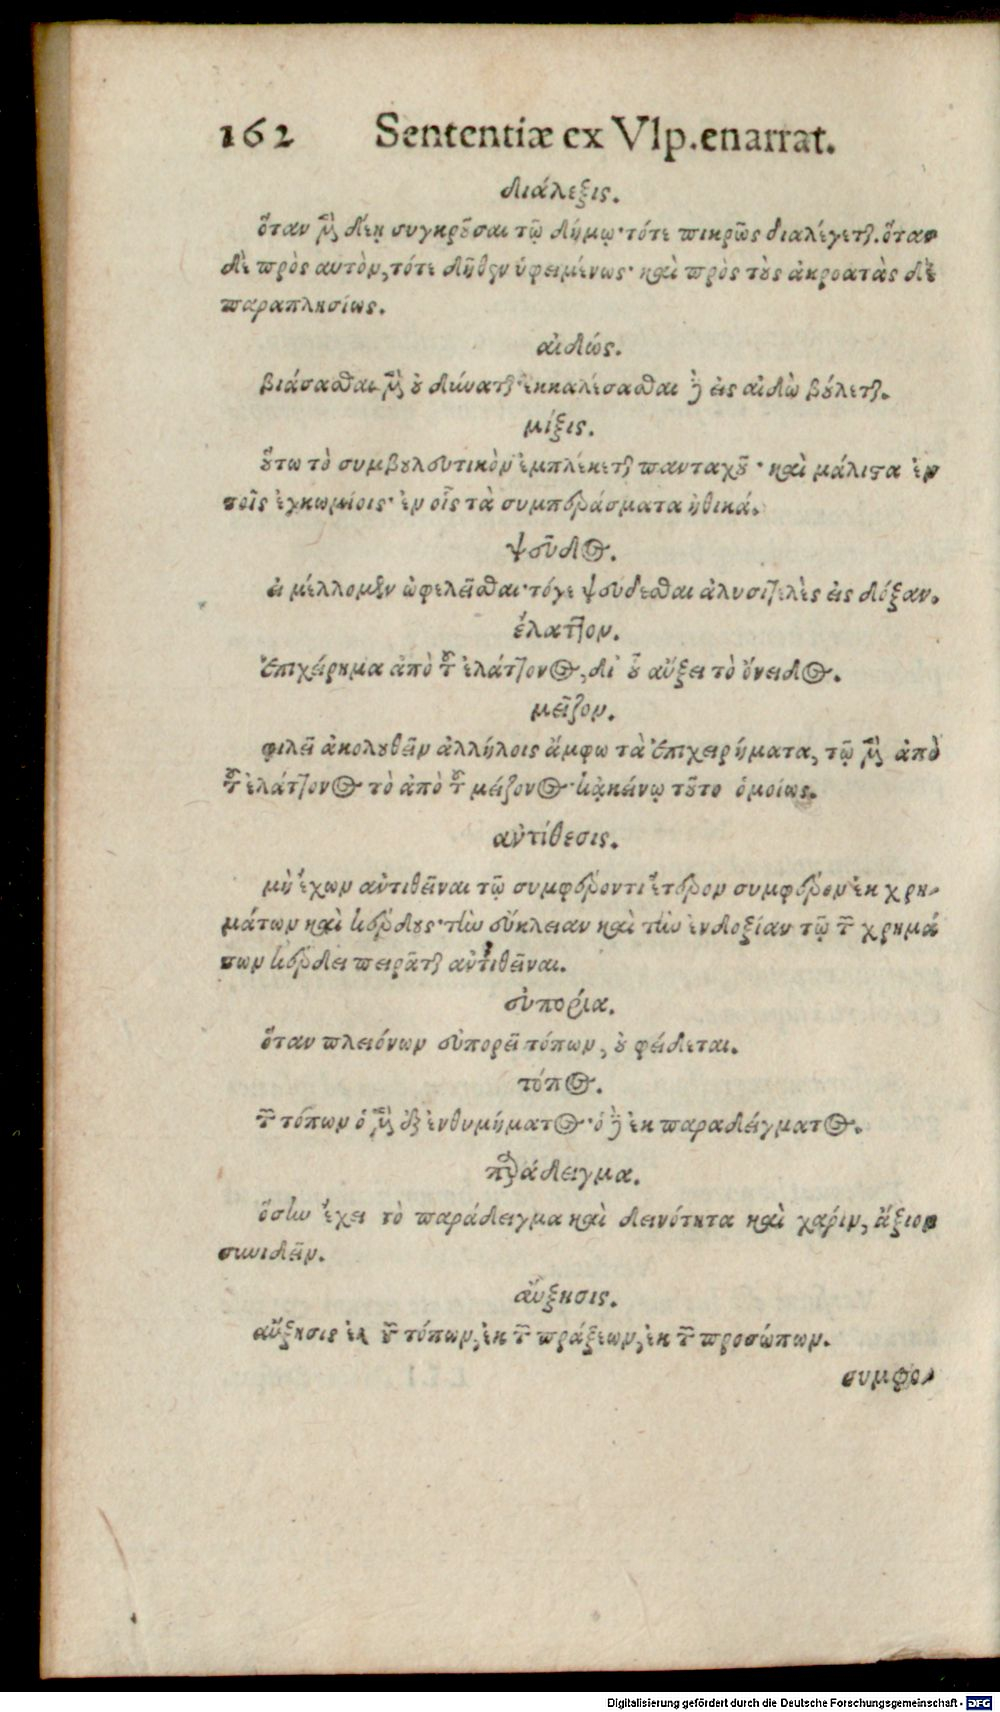 162 Sententiæ ex Vlp. enarrat.
διάλεξις.
ὅταν μὲν δέῃ συγκροῦσαι τῷ δήμῳ· τότε πικρῶς διαλέγεται. ὅταν
δὲ πρὸς αὐτὸν, τότε δῆθεν ὑφειμένως· καὶ πρὸς τοὺς ἀκροατὰς δὲ
παραπλησίως.
αἰδώς.
βιάσασθαι μὲν οὐ δύναται· ἐκκαλέσασθαι δὲ εἰς αἰδὼ βούλεται.
μίξις.
οὕτω τὸ συμβουλευτικὸν ἐμπλέκεται πανταχοῦ· καὶ μάλιστα ἐν
τοῖς ἐγκωμίοις· ἐν οἷς τὰ συμπεράσματα ἠθικά.
ψεῦδος.
εἰ μέλλομεν ὠφελεῖσθαι· τόγε ψεύδεσθαι ἀλυσιτελὲς εἰς δόξαν.
ἔλαττον.
ἐπιχείρημα ἀπὸ τοῦ ἐλάττονος, δι' οὗ αὔξει τὸ ὄνειδος.
μεῖζον.
φιλεῖ ἀκολουθεῖν ἀλλήλοις ἄμφω τὰ ἐπιχειρήματα, τῷ μὲν ἀπὸ
τοῦ ἐλάττονος τὸ ἀπὸ τοῦ μείζονος· κᾀκείνῳ τοῦτο ὁμοίως.
ἀντίθεσις.
μὴ ἔχων ἀντιθεῖναι τῷ συμφέροντι ἕτερον συμφέρον ἐκ χρη-
μάτων καὶ κέρδους· τὴν εὔκλειαν καὶ τὴν ἐνδοξίαν τῷ τῶν χρημά
των κέρδει πειρᾶται ἀντιθεῖναι.
εὐπορία.
ὅταν πλειόνων εὐπορεῖ τόπων, οὐ φείδεται.
τόπος.
τῶν τόπων ὁ μὲν ἐξ ἐνθυμήματος· ὁ δὲ ἐκ παραδείγματος.
παράδειγμα.
ὅσην ἔχει τὸ παράδειγμα καὶ δεινότητα καὶ χάριν, ἄξιον
συνιδεῖν.
αὔξησις.
αὔξησις ἐκ τῶν τόπων, ἐκ τῶν πράξεων, ἐκ τῶν προσώπων.
συμφο-
Digitalisierung gefördert durch die Deutsche Forschungsgemeinschaft - DFG